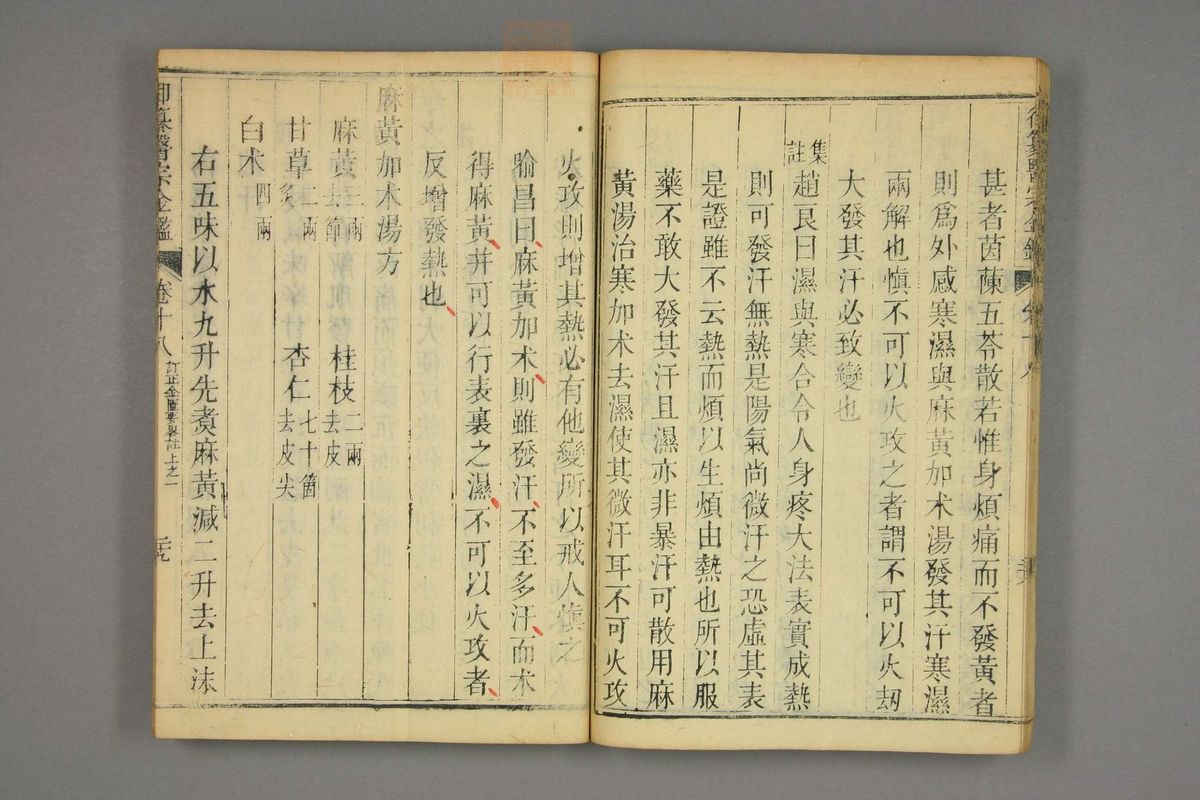 甚者茵蔯五苓散若惟身煩痛而不發黃者
則為外感寒濕與麻黃加术湯發其汗寒濕
兩解也慎不可以火攻之者謂不可以火刼
大發其汗必致變也
集註
趙良曰濕與寒合令人身疼大法表實成熱
則可發汗無熱是陽氣尚微汗之恐虛其表
是證雖不云熱而煩以生煩由熱也所以服
藥不敢大發其汗且濕亦非暴汗可散用麻
黃湯治寒加术去濕使其微汗耳不可火攻
火攻則增其熱必有他變所以戒人慎之
喻昌曰麻黃加术則雖發汗不至多汗而术
得麻黃并可以行表裏之濕不可以火攻者
反增發熱也
麻黃加术湯方
麻黃三兩去節 桂枝二兩去皮
甘草二兩炙 杏仁七十箇去皮尖
白术四兩
右五味以水九升先煑麻黃減二升去上沫
御纂醫宗金鑑 卷十八 訂正金匱要畧註上之一